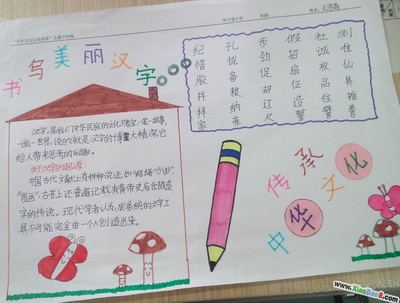 书写美丽汉字
汉字,是我们中华民族的文化瑰宝,一笔一故事,
一画一世界,说的就是汉字的博大精深,它
给人带来思考的乐趣。
关于汉字的起源
中国古代文献上有种种说法,如"结绳"、"八卦"、
"图画"、古书上还普遍记载有黄帝史官仓颉造
字的传说。现代学者认为,成系统的文字工
具不可能完全由一个人创造出来。
纪 孔 步 假 社 测
惜 拢 劲 招 诚 惟
胶 备 促 扇 枚 仙
拼 粮 却 征 品 具
拜 纳 辽 往 推
家 东 尺 造 臂 普
传承
中华文化
www.XiaoBao8.com